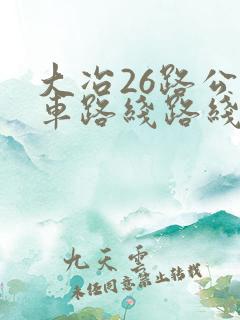 大冶26路公
車路綫路綫
九天雲
未经同意禁止转载